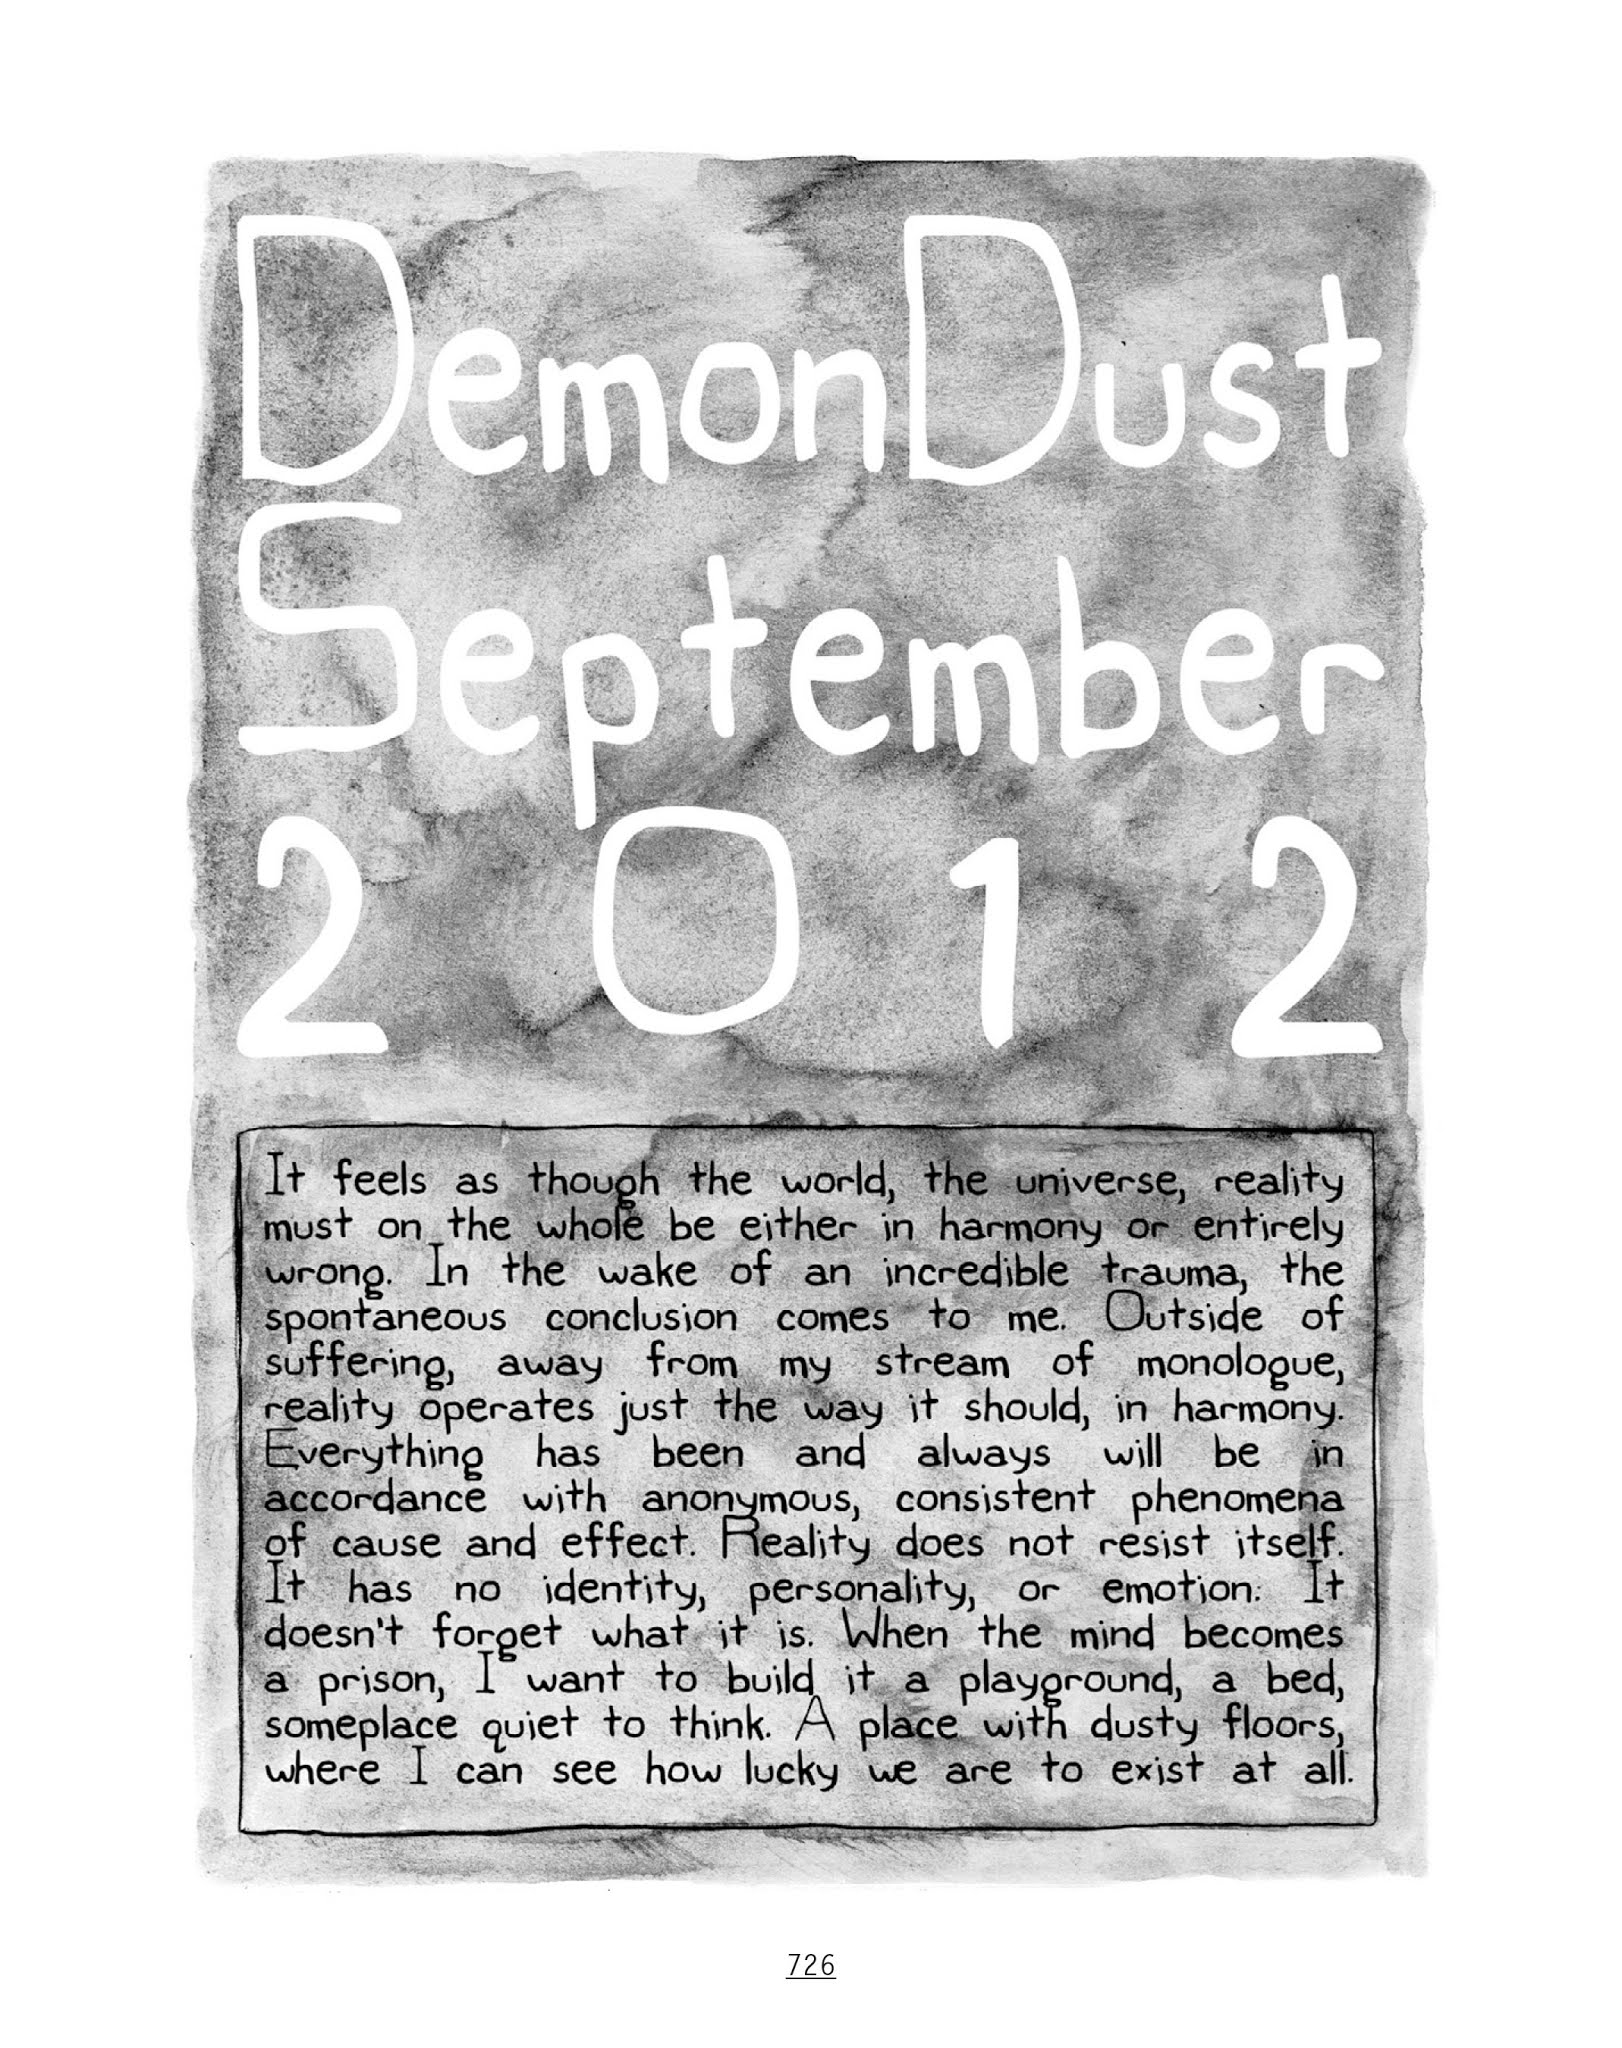 DemonDust
September
2012
It feels as though the world, the universe, reality
must on the whole be either in harmony or entirely
wrong. In the wake of an incredible trauma, the
spontaneous conclusion comes to me. Outside of
suffering, away from my stream of monologue,
reality operates just the way it should, in harmony.
Everything has been and always will be in
accordance with anonymous, consistent phenomena
of cause and effect. Reality does not resist itself.
It has no identity, personality, or emotion. It
doesn't forget what it is. When the mind becomes
a prison, I want to build it a playground, a bed,
someplace quiet to think. A place with dusty floors,
where I can see how lucky we are to exist at all.
726